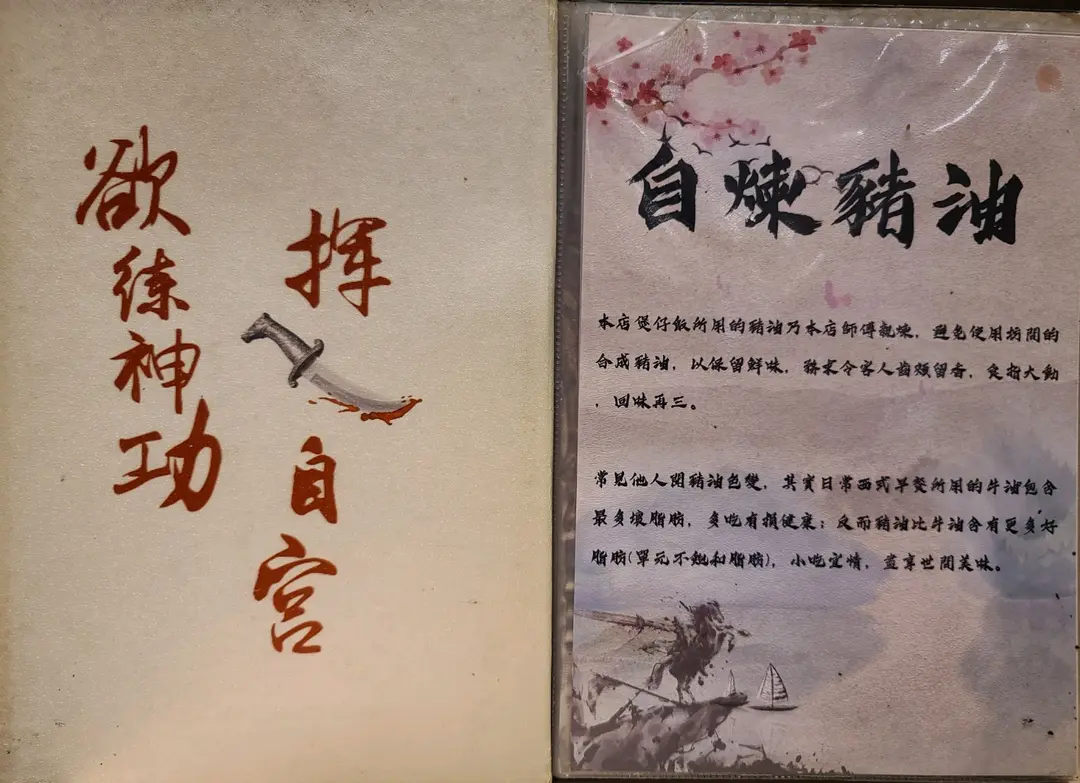 欲练神功
挥
自宫
自煉豬油
本店煲仔飯所用的豬油乃本店師傅親煉，避免使用坊間的
合成豬油，以保留鮮味，務求令客人齒頰留香，食指大動
，回味再三。
常見他人聞豬油色變，其實日常西式早餐所用的牛油包含
最多壞脂肪，多吃有損健康；反而豬油比牛油含有更多好
脂肪(單元不飽和脂肪)，小吃定情，盡享世間美味。